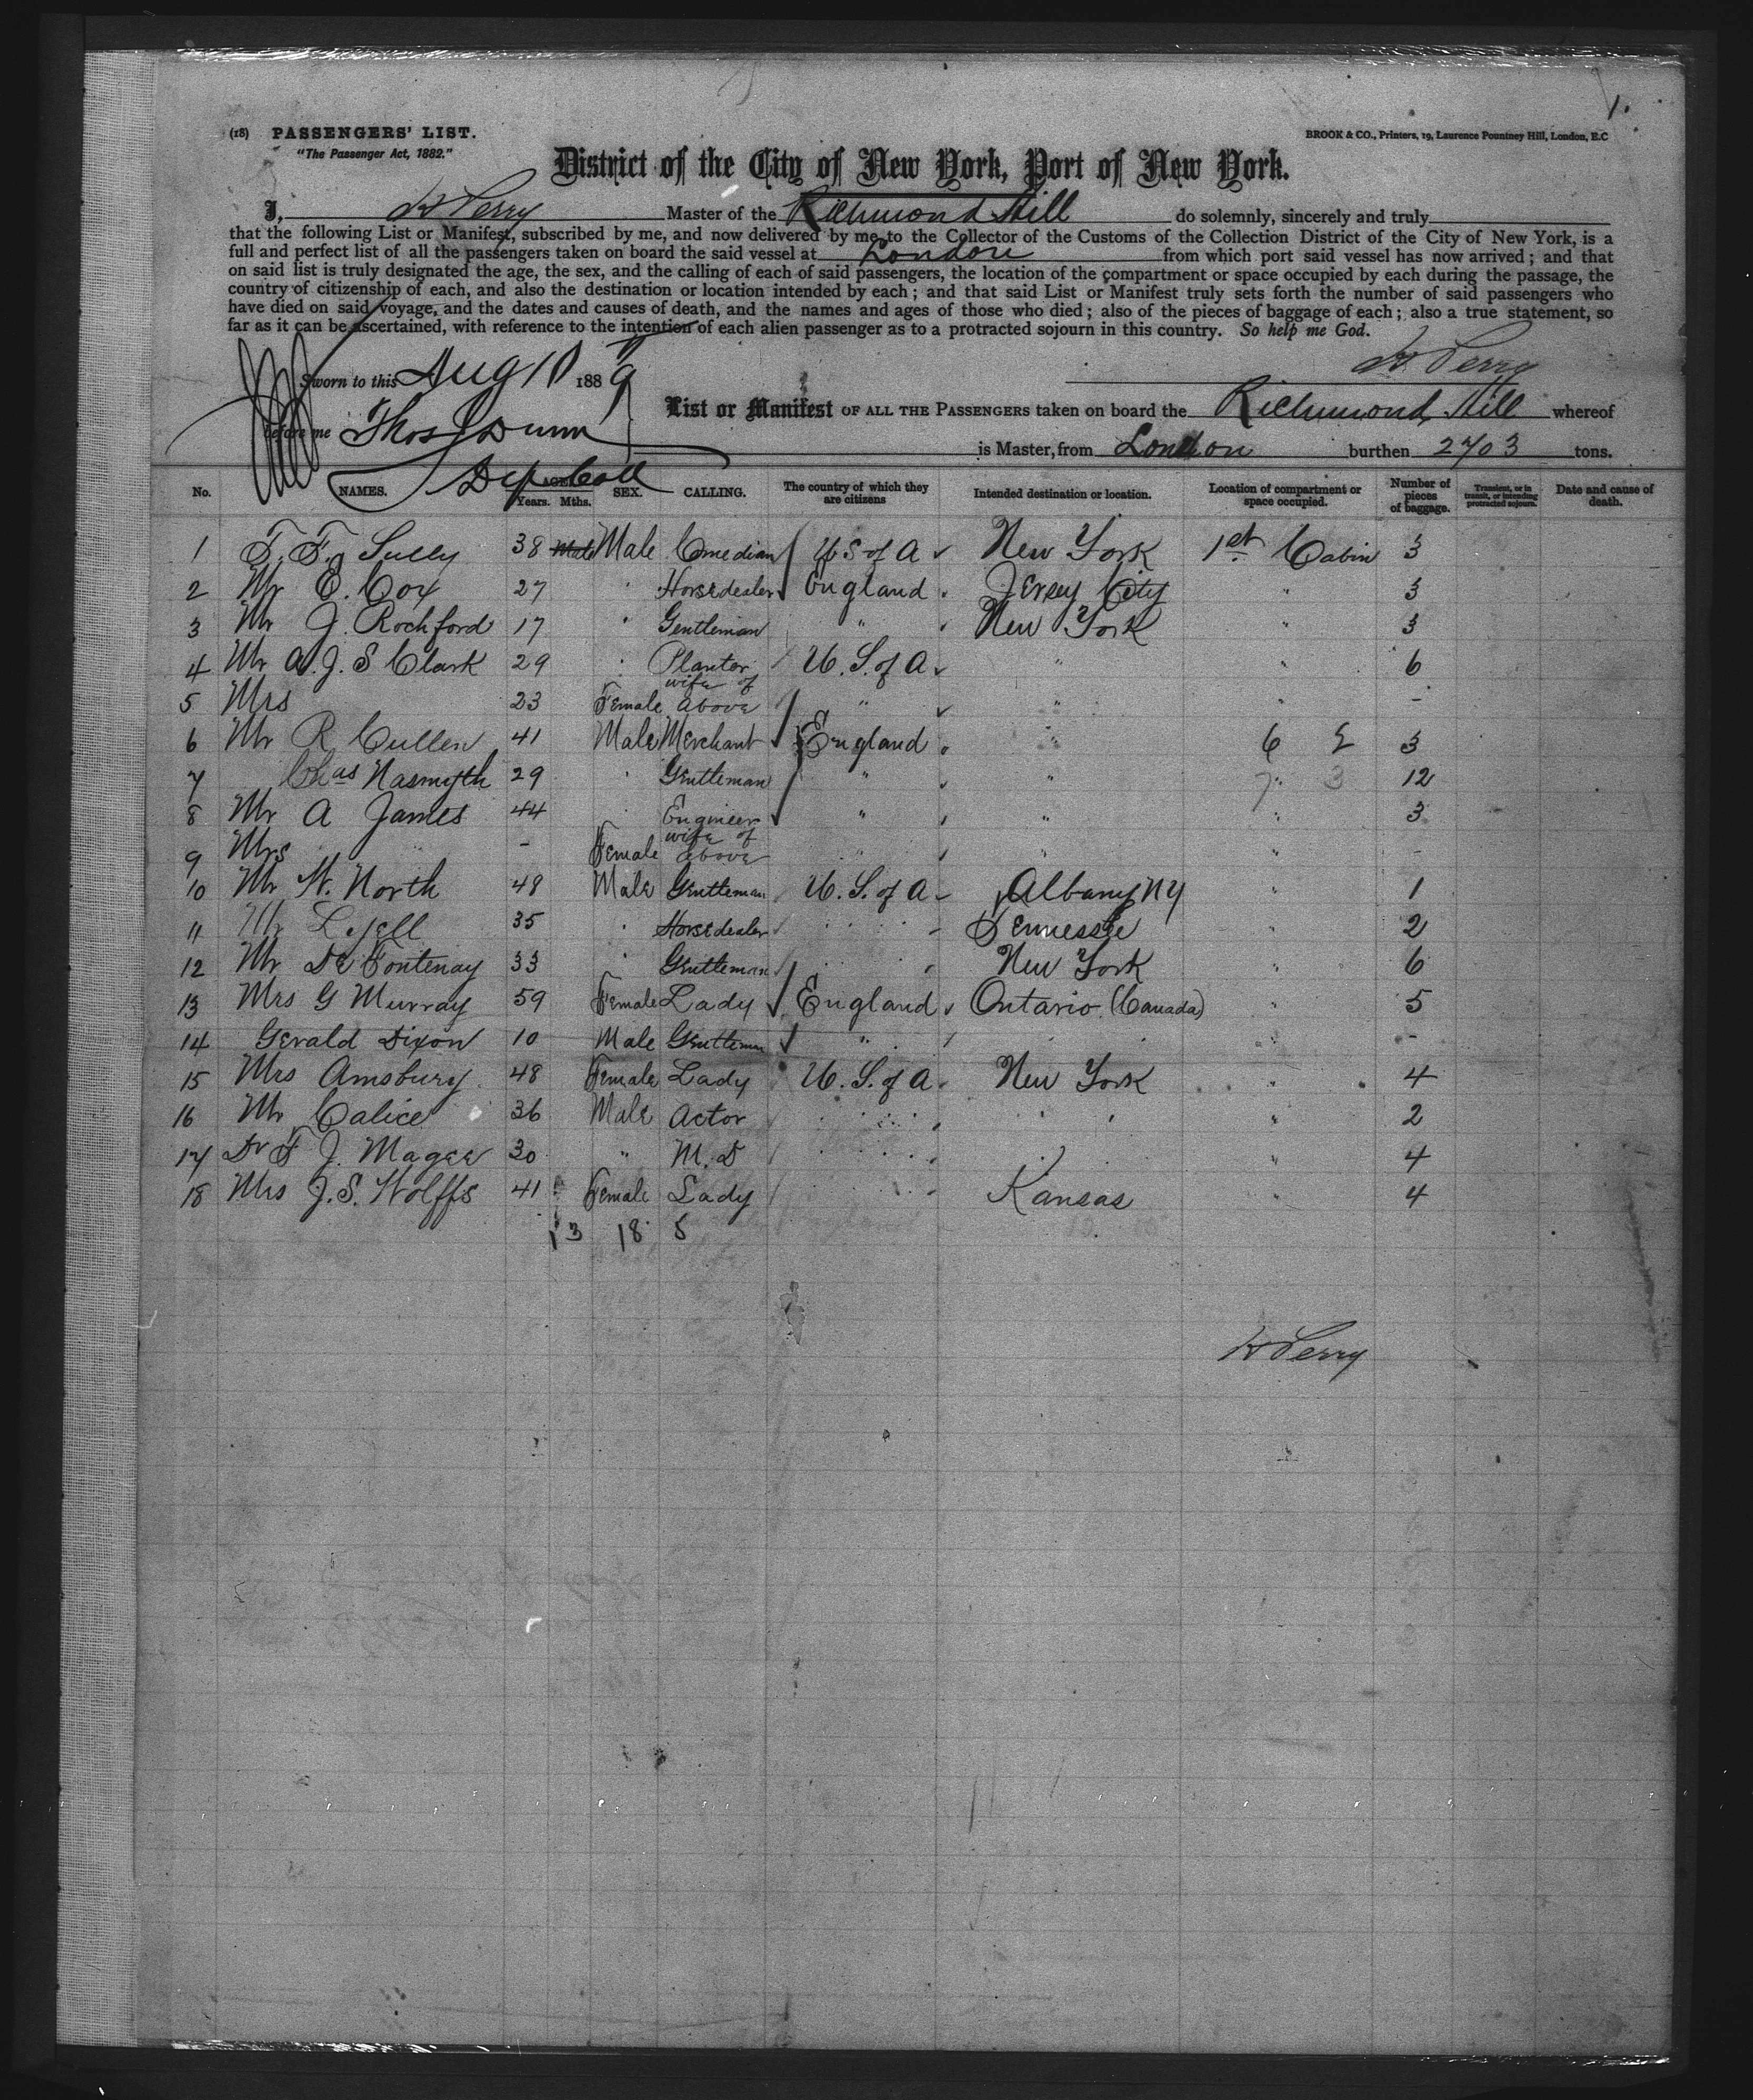 1.
(18) PASSENGERS' LIST.
BROOK & CO., Printers, 19, Laurence Pountney Hill, London, E.C
"The Passenger Act, 1882."
District of the City of New York, Port of New York.
I, H Perry Master of the Richmond Hill do solemnly, sincerely and truly
that the following List or Manifest, subscribed by me, and now delivered by me to the Collector of the Customs of the Collection District of the City of New York, is a
full and perfect list of all the passengers taken on board the said vessel at London from which port said vessel has now arrived; and that
on said list is truly designated the age, the sex, and the calling of each of said passengers, the location of the compartment or space occupied by each during the passage, the
country of citizenship of each, and also the destination or location intended by each; and that said List or Manifest truly sets forth the number of said passengers who
have died on said voyage, and the dates and causes of death, and the names and ages of those who died; also of the pieces of baggage of each; also a true statement, so
far as it can be ascertained, with reference to the intention of each alien passenger as to a protracted sojourn in this country. So help me God.
H Perry
Sworn to this Aug 10 1889
List or Manifest OF ALL THE PASSENGERS taken on board the Richmond Hill whereof
before me Thos J Dunn
is Master, from London burthen 2703 tons.
Dep Coll
No. NAMES. AGE Years. Mths. SEX. CALLING. The country of which they are citizens Intended destination or location. Location of compartment or space occupied. Number of pieces of baggage. Transient, or in transit, or intending protracted sojourn. Date and cause of death.
1 F. F. Sully 38 Male Male Comedian U S of A New York 1st Cabin 3
2 Mr E. Cox 27 " Horsedealer England Jersey City " 3
3 Mr J. Rochford 17 " Gentleman " New York " 3
4 Mr A. J. S Clark 29 " Planter U. S. of A " " 6
5 Mrs " 23 Female wife of above " " " -
6 Mr R Cullen 41 Male Merchant England " 6 3
7 Chas Nasmyth 29 " Gentleman " " 7 " 3 12
8 Mr A James 44 " Engineer " " " 3
9 Mrs " - Female wife of above " " " -
10 Mr W. North 48 Male Gentleman U. S. of A Albany NY " 1
11 Mr Lyell 35 " Horsedealer " Tennessee " 2
12 Mr De Fontenay 33 " Gentleman " New York " 6
13 Mrs G Murray 59 Female Lady England Ontario (Canada) " 5
14 Gerald Dixon 10 Male Gentleman " " " -
15 Mrs Amsbury 48 Female Lady U. S. of A New York " 4
16 Mr Calice 36 Male Actor " " " 2
17 Dr F J. Magee 30 " M. D " " " 4
18 Mrs J. S. Wolffs 41 Female Lady " Kansas " 4
13 18 5
H Perry